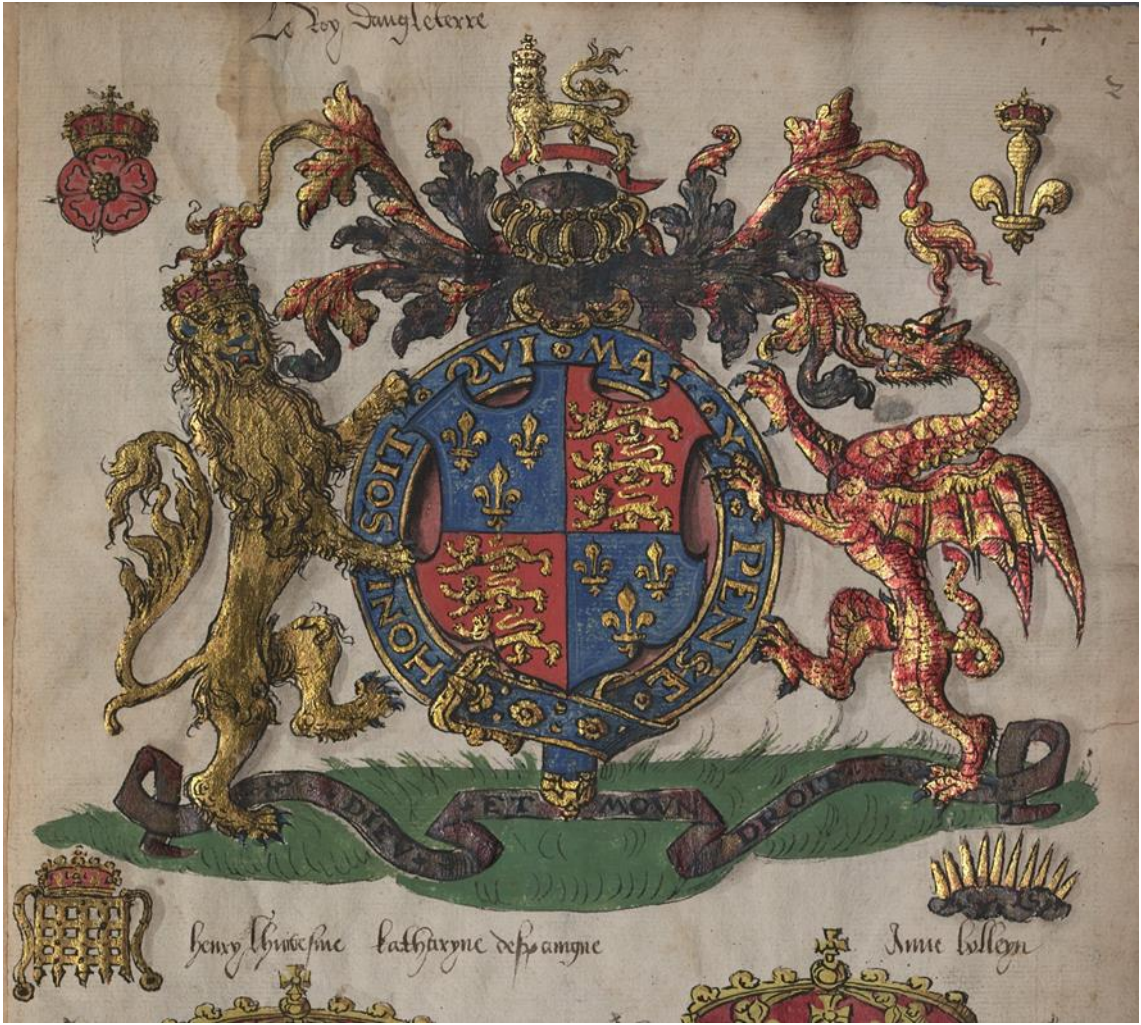 Le Roy dangleterre
HONI · SOIT · QVI · MAL · Y · PENSE ·
DIEV ET MOVN DROIT
henry katharyne despaingne Anne bolleyn